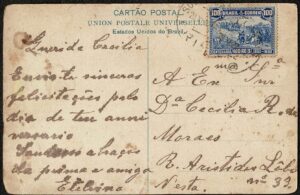 CARTÃO POSTAL
UNION POSTALE UNIVERSELLE
Estados Unidos do Brazil
BRASIL CORREIO
100 100
Cecilia
Envio-te sinceras
felicitações pelo
dia de teu anni
versario
abraços
da prima e amiga
Etelvina
A Ex
Dª Cecilia R. de
Moraes
R. Aristides Lôbo
Nesta. nº 39